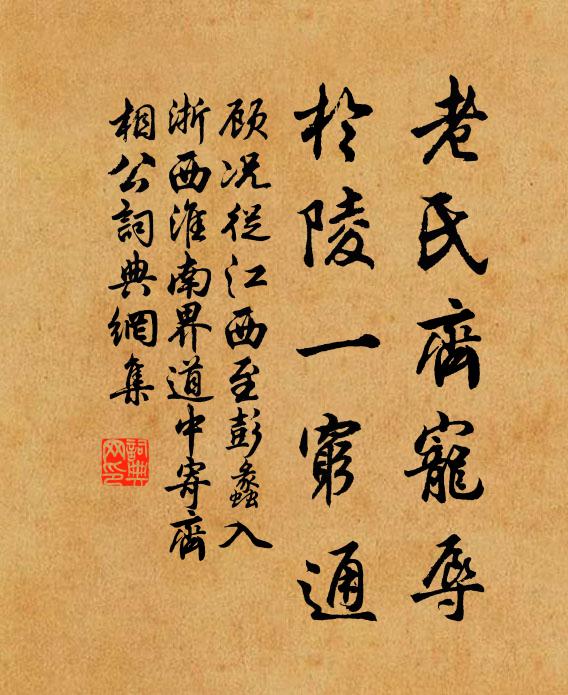 老氏齊寵辱
於陵一窮通
顾况從江西至彭蠡入
浙西淮南界道中寄齊
相公詞典網集
詞典
网印